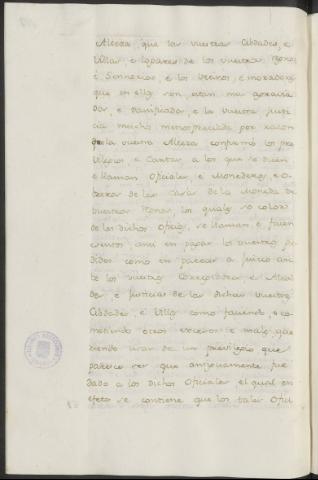 Alteza, que las vuestras Cibdades, e
Villas, e logares de los vuestros Regnos
è Sennorios, è los vecinos, è moradores
que en ellos son, estan mui agravia
dos, e danificados, e la vuestra justi
cia mucho menospreciada por razon
de la vuestra Alteza confirmó los pre
vilegios, e Cartas, a los que se dicen
e llaman Oficiales, e Monederos, e O
breros de las Casas de la Moneda de
vuestros Regnos, los quales so color
de los dichos Oficios, se llaman, e facen
esentos, ansi en pagar los vuestros pe
didos como en parecer a juicio an
te los vuestros Corregidores, è Alcal
des, e Justicias de las dichas vuestras
Cibdades, e Villas como faciendo, e co
metiendo otros excesos e males, que
riendo usar de un previlegio que
parece ser que antiguamente fue
dado a los dichos Oficiales el qual en
efeto se contiene que los tales Ofici